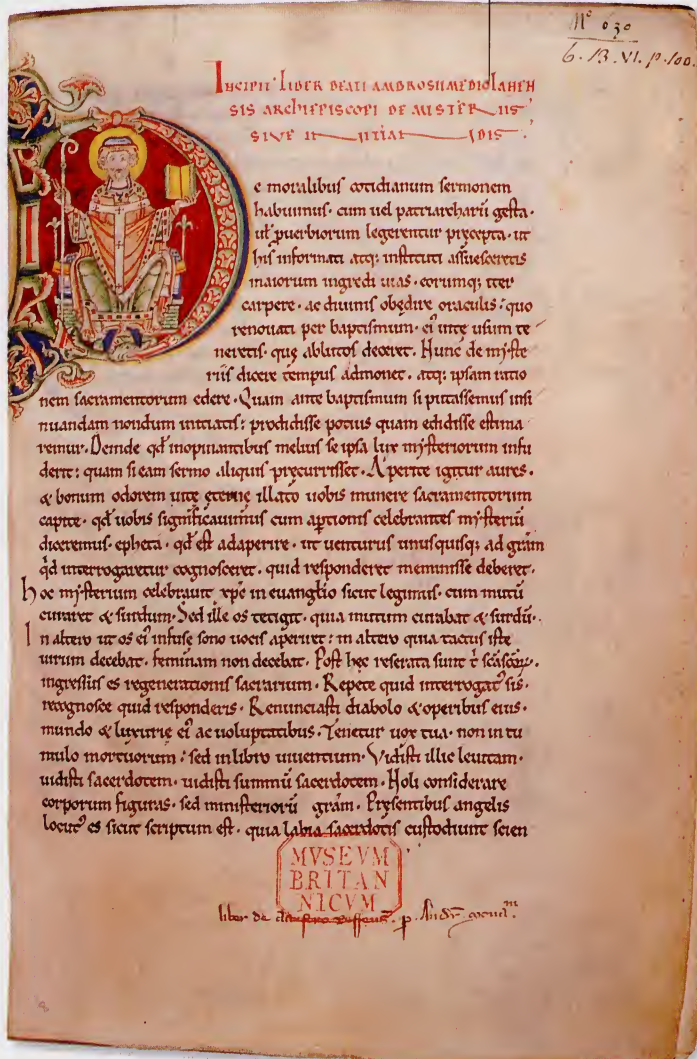 Nº 030
6. B. VI. p. 100.
INCIPIT LIBER BEATI AMBROSII MEDIOLANEN
SIS ARCHIEPISCOPI DE MISTERIIS
SIVE INITIANDIS.
e moralibus cotidianum sermonem
habuimus· cum uel patriarcharū gesta·
ut̄ puerbiorum legerentur pręcepta· ut
his informati atq; instituti assuesceretis
maiorum ingredi uias· eorumq; iter
carpere· ac diuinis obędire oraculis: quo
renouati per baptismum· ei' uitę usum te
neretis· quę ablutos deceret. Hunc de myste
riis dicere tempus admonet. atq; ipsam ratio
nem sacramentorum edere· Quam ante baptismum si putassemus insi
nuandam nondum initiatis: prodidisse potius quam edidisse estima
remur. Deinde qđ inopinantibus melius se ipsa lux mysteriorum infu
derit: quam si eam sermo aliquis pręcurrisset. Aperite igitur aures.
& bonum odorem uitę ęternę illato uobis munere sacramentorum
capite· qđ uobis significauimus cum aptionis celebrantes mysteriū
diceremus· epheta· qđ est adaperire· ut uenturus unusquisq; ad grām
qđ interrogaretur cognosceret. quid responderet meminisse deberet.
hoc mysterium celebrauit xp̄c in euanglio sicut legimus· cum mutū
curaret & surdum. Sed ille os tetigit. quia mutum curabat & surdū·
In altero ut os ei' infusę sono uocis aperiret: in altero quia tactus iste
uirum decebat· feminam non decebat. Post hęc reserata sunt t̄ scāscōr̄·
ingressus es regenerationis sacrarium. Repete quid interrogat' sis·
recognosce quid responderis. Renunciasti diabolo & operibus eius·
mundo & luxurię ei' ac uoluptatibus. Tenetur uox tua· non in tu
mulo mortuorum: sed in libro uiuentium. Vidisti illic leuitam·
uidisti sacerdotem. uidisti summū sacerdotem. Noli considerare
corporum figuras· sed ministeriorū grām. Pręsentibus angelis
locut' es sicut scriptum est. quia labia sacerdotis custodiunt scien
MVSEVM
BRITAN
NICVM
liber de claustro Roffens̄. p.